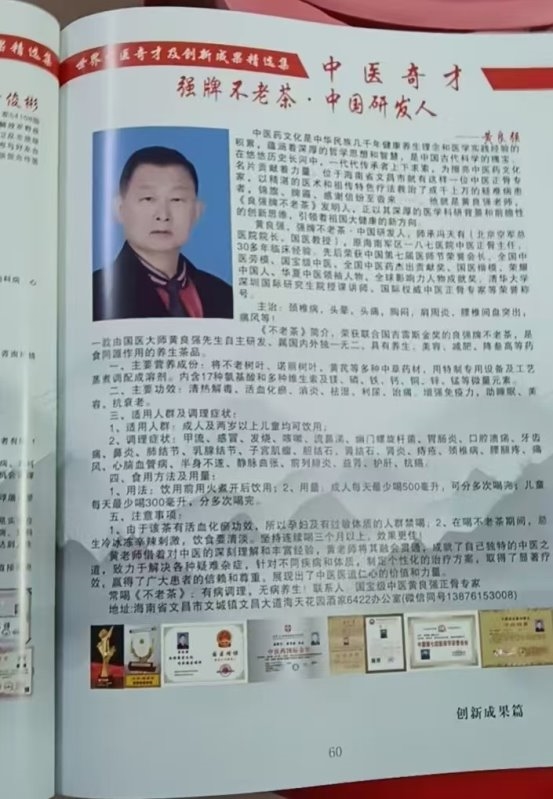 世界中医奇才及创新成果精选集
中医奇才
强牌不老茶·中国研发人
——黄良强
中医药文化是中华民族几千年健康养生理念和医学实践经验的
积累，蕴涵着深厚的哲学思想和智慧，是中国古代科学的瑰宝。
在悠悠历史长河中，一代代传承者上下求索，为擦亮中医药文化
名片贡献着力量。位于海南省文昌市就有这样一位中医正骨专
家，以精湛的医术和祖传特色疗法救治了成千上万的疑难病患
者，锦旗、牌匾、感谢信纷至沓来——。他就是黄良强老师，
《良强牌不老茶》发明人，正以其深厚的医学科研背景和前瞻性
的创新思维，引领着祖国大健康的新方向。
黄良强、强牌不老茶·中国研发人，师承冯天有（北京空军总
医院院长、国医教授），原海南军区一八七医院中医正骨主任，
30多年临床经验。先后荣获中国第七届医师节荣誉会长、全国中
医劳模、国宝级中医、全国中医药杰出贡献奖、国医楷模、荣耀
中国人、华夏中医领袖人物、全球影响力人物成就奖，清华大学
深圳国际研究生院授课讲师、国际权威中医正骨专家等荣誉称
号。
主治：颈椎病，头晕、头痛，胸闷，肩周炎，腰椎间盘突出，
痛风等！
《不老茶》简介，荣获联合国吉雷斯金奖的良强牌不老茶，是
一款由国医大师黄良强先生自主研发、属国内外独一无二，具有养生、美容、减肥、降叁高等药
食同源作用的养生茶品。
一、主要营养成份：将不老树叶、诺丽树叶、黄芪等多种中草药材，用特制专用设备及工艺
蒸煮调配成溶剂。内含17种氨基酸和多种维生素及镁、磷、铁、钙、铜、锌、锰等微量元素。
二、主要功效：清热解毒、活血化瘀、消炎、祛湿、利尿、治痛、增强免疫力，助睡眠、美
容，抗衰老。
三、适用人群及调理症状：
1、适用人群：成人及两岁以上儿童均可饮用；
2、调理症状：甲流、感冒、发烧、咳嗽、流鼻涕、幽门螺旋杆菌、胃肠炎、口腔溃疡、牙齿
痛、鼻炎、肺结节、乳腺结节、子宫肌瘤、胆结石、肾结石、肾炎、痔疮、颈椎病、腰腿疼、痛
风、心脑血管病、半身不遂、静脉曲张、前列腺炎、益肾、护肝、抗癌；
四、食用方法及用量：
1、用法：饮用前用火煮开后饮用；2、用量：成人每天最少喝500毫升，可分多次喝完；儿童
每天最少喝300毫升，分多次喝完。
五、注意事项：
1、由于该茶有活血化瘀功效，所以孕妇及有过敏体质的人群禁喝，2、在喝不老茶期间，忌
生冷冰冻辛辣刺激，饮食要清淡。坚持连续喝三个月以上，效果更佳！
黄老师借着对中医的深刻理解和丰富经验，黄老师将其融会贯通，成就了自己独特的中医之
道，致力于解决各种疑难杂症，针对不同疾病和体质，制定个性化的治疗方案，取得了显著疗
效，赢得了广大患者的信赖和尊重，展现出了中医医道仁心的价值和力量。
常喝《不老茶》：有病调理，无病养生！联系人 国宝级中医黄良强正骨专家
地址:海南省文昌市文城镇文昌大道海天花园酒家6422办公室(微信同号13876153008)
创新成果篇
60